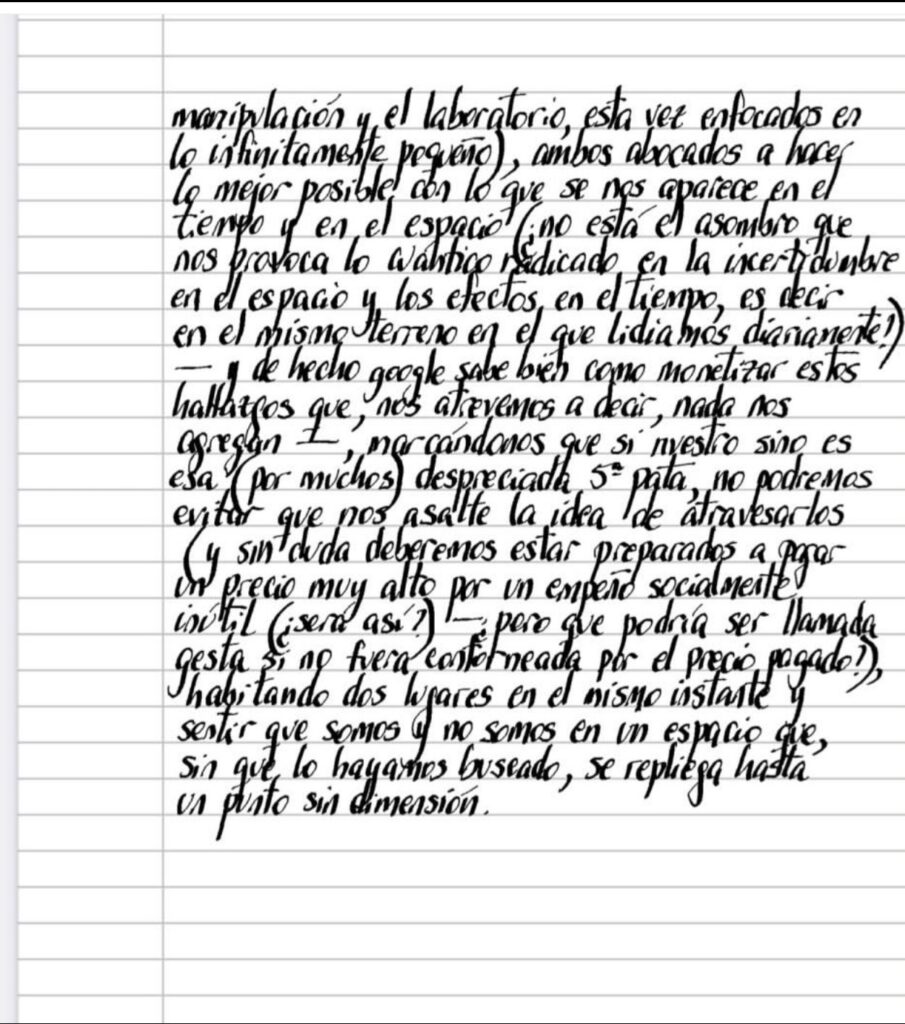 manipulación y el laboratorio, esta vez enfocados en
lo infinitamente pequeño), ambos abocados a hacer
lo mejor posible con lo que se nos aparece en el
tiempo y en el espacio (¿no está el asombro que
nos provoca lo cuántico radicado en la incertidumbre
en el espacio y los efectos en el tiempo, es decir
en el mismo terreno en el que lidiamos diariamente?)
— y de hecho google sabe bien como monetizar estos
hallazgos que, nos atrevemos a decir, nada nos
agregan —, marcándonos que si nuestro sino es
esa (por muchos) despreciada 5ª pata, no podremos
evitar que nos asalte la idea de atravesarlos
(y sin duda deberemos estar preparados a pagar
un precio muy alto por un empeño socialmente
inútil (¿será así?) — ¿pero que podría ser llamada
gesta si no fuera contorneada por el precio pagado?),
habitando dos lugares en el mismo instante y
sentir que somos y no somos en un espacio que,
sin que lo hayamos buscado, se repliega hasta
un punto sin dimensión.